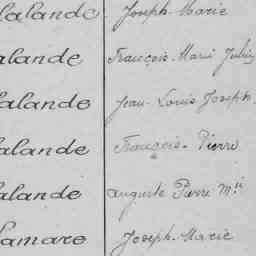 Lalande Joseph Marie
Lalande François Marie Julien
Lalande Jean-Louis Joseph
Lalande François-Pierre
Lalande Auguste Pierre M.ie
Lamare Joseph-Marie